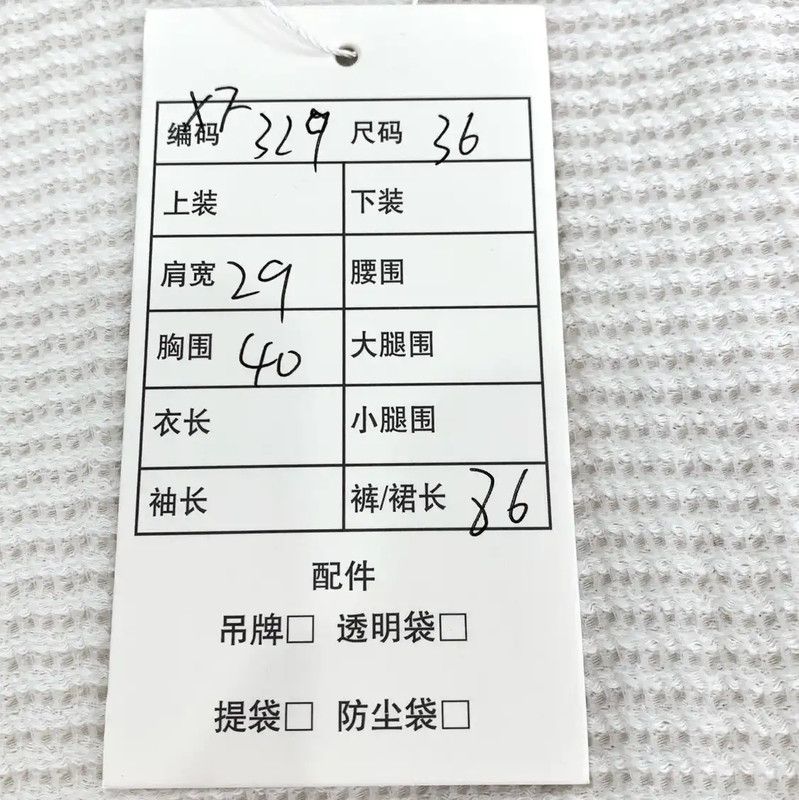 XZ
编码 329 尺码 36
上装 下装
肩宽 29 腰围
胸围 40 大腿围
衣长 小腿围
袖长 裤/裙长 86
配件
吊牌□ 透明袋□
提袋□ 防尘袋□